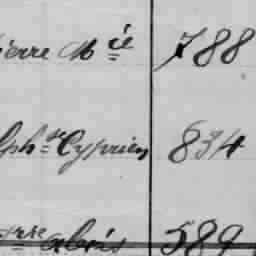 ierre M^ie 788
lph^se Cyprien 834
589